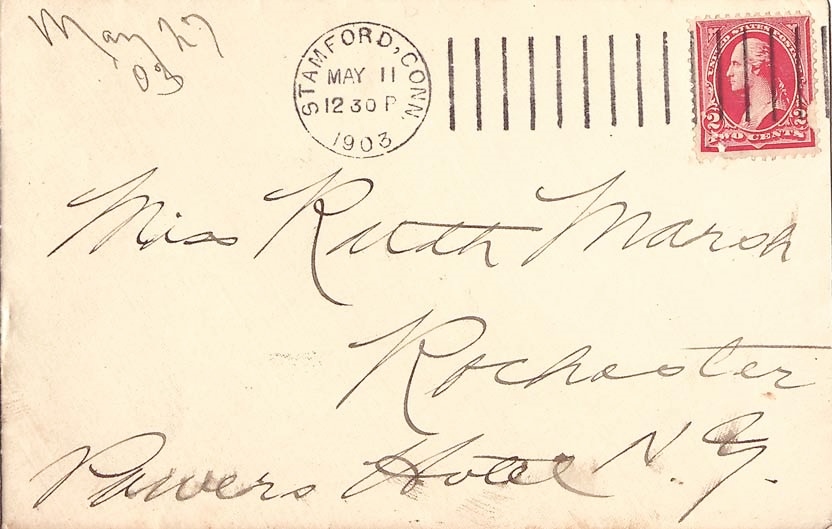 May 27
'03
STAMFORD, CONN.
MAY 11
12 30 P
1903
UNITED STATES POSTAGE
2 2
TWO CENTS
Miss Ruth Marsh
Rochester
Powers Hotel N.Y.